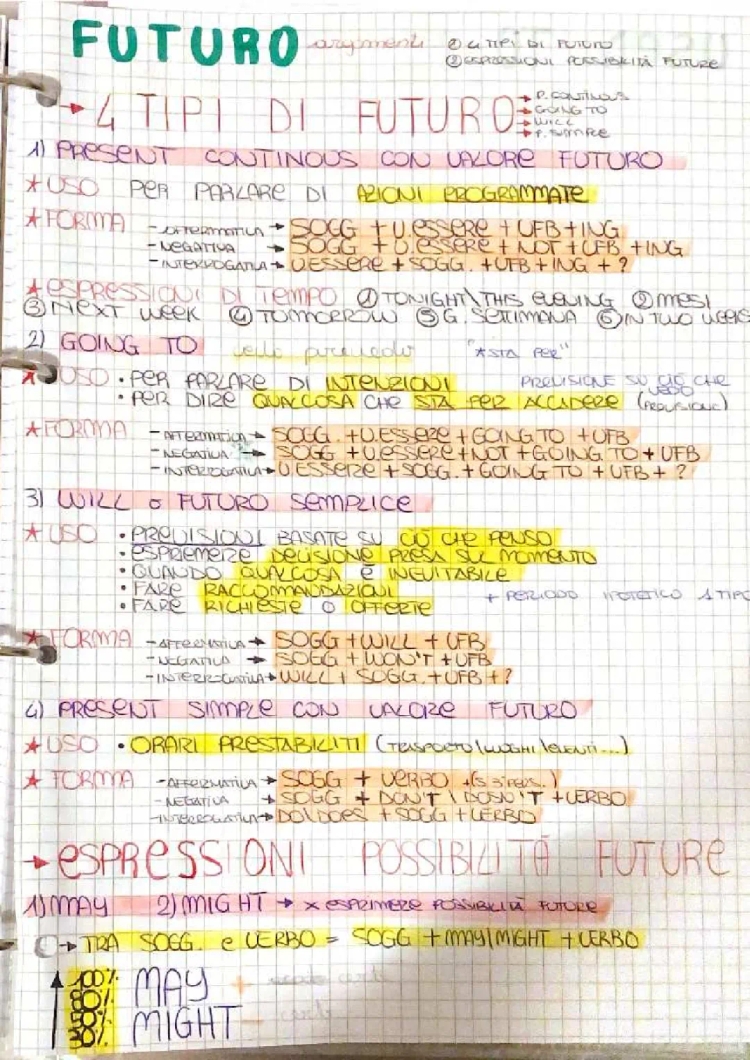 FUTURO argomenti ① 4 TIPI DI FUTURO
② ESPRESSIONI POSSIBILITÀ FUTURE
→ 4 TIPI DI FUTURO → P. CONTINOUS
→ GOING TO
→ WILL
→ P. SIMPLE
1) PRESENT CONTINOUS CON VALORE FUTURO
★ USO PER PARLARE DI AZIONI PROGRAMMATE
★ FORMA - AFFERMATIVA → SOGG + V. ESSERE + VFB + ING
- NEGATIVA → SOGG + V. ESSERE + NOT + VFB + ING
- INTERROGATIVA → V. ESSERE + SOGG. + VFB + ING + ?
★ ESPRESSIONI DI TEMPO ① TONIGHT \ THIS EVENING ② MESI
③ NEXT WEEK ④ TOMORROW ⑤ G. SETTIMANA ⑥ IN TWO WEEKS
2) GOING TO "★ STA PER"
★ USO • PER PARLARE DI INTENZIONI PREVISIONE SU CIÒ CHE VEDO
• PER DIRE QUALCOSA CHE STA PER ACCADERE (PREVISIONE)
★ FORMA - AFFERMATIVA → SOGG. + V. ESSERE + GOING TO + VFB
- NEGATIVA → SOGG + V. ESSERE + NOT + GOING TO + VFB
- INTERROGATIVA → V. ESSERE + SOGG. + GOING TO + VFB + ?
3) WILL o FUTURO SEMPLICE
★ USO • PREVISIONI BASATE SU CIÒ CHE PENSO
• ESPREMERE DECISIONE PRESA SUL MOMENTO
• QUANDO QUALCOSA È INEVITABILE
• FARE RACCOMANDAZIONI
• FARE RICHIESTE O OFFERTE + PERIODO IPOTETICO 1 TIPO
★ FORMA - AFFERMATIVA → SOGG + WILL + VFB
- NEGATIVA → SOGG + WON'T + VFB
- INTERROGATIVA → WILL + SOGG. + VFB + ?
4) PRESENT SIMPLE CON VALORE FUTURO
★ USO • ORARI PRESTABILITI (TRASPORTO \ LUOGHI \ EVENTI...)
★ FORMA - AFFERMATIVA → SOGG + VERBO + (S 3ª PERS.)
- NEGATIVA → SOGG + DON'T \ DOSN'T + VERBO
- INTERROGATIVA → DO \ DOES + SOGG + VERBO
→ ESPRESSIONI POSSIBILITÀ FUTURE
1) MAY 2) MIGHT → x ESPRIMERE POSSIBILITÀ FUTURE
→ TRA SOGG. e VERBO = SOGG + MAY \ MIGHT + VERBO
100%
80% MAY +
50% MIGHT -
30%